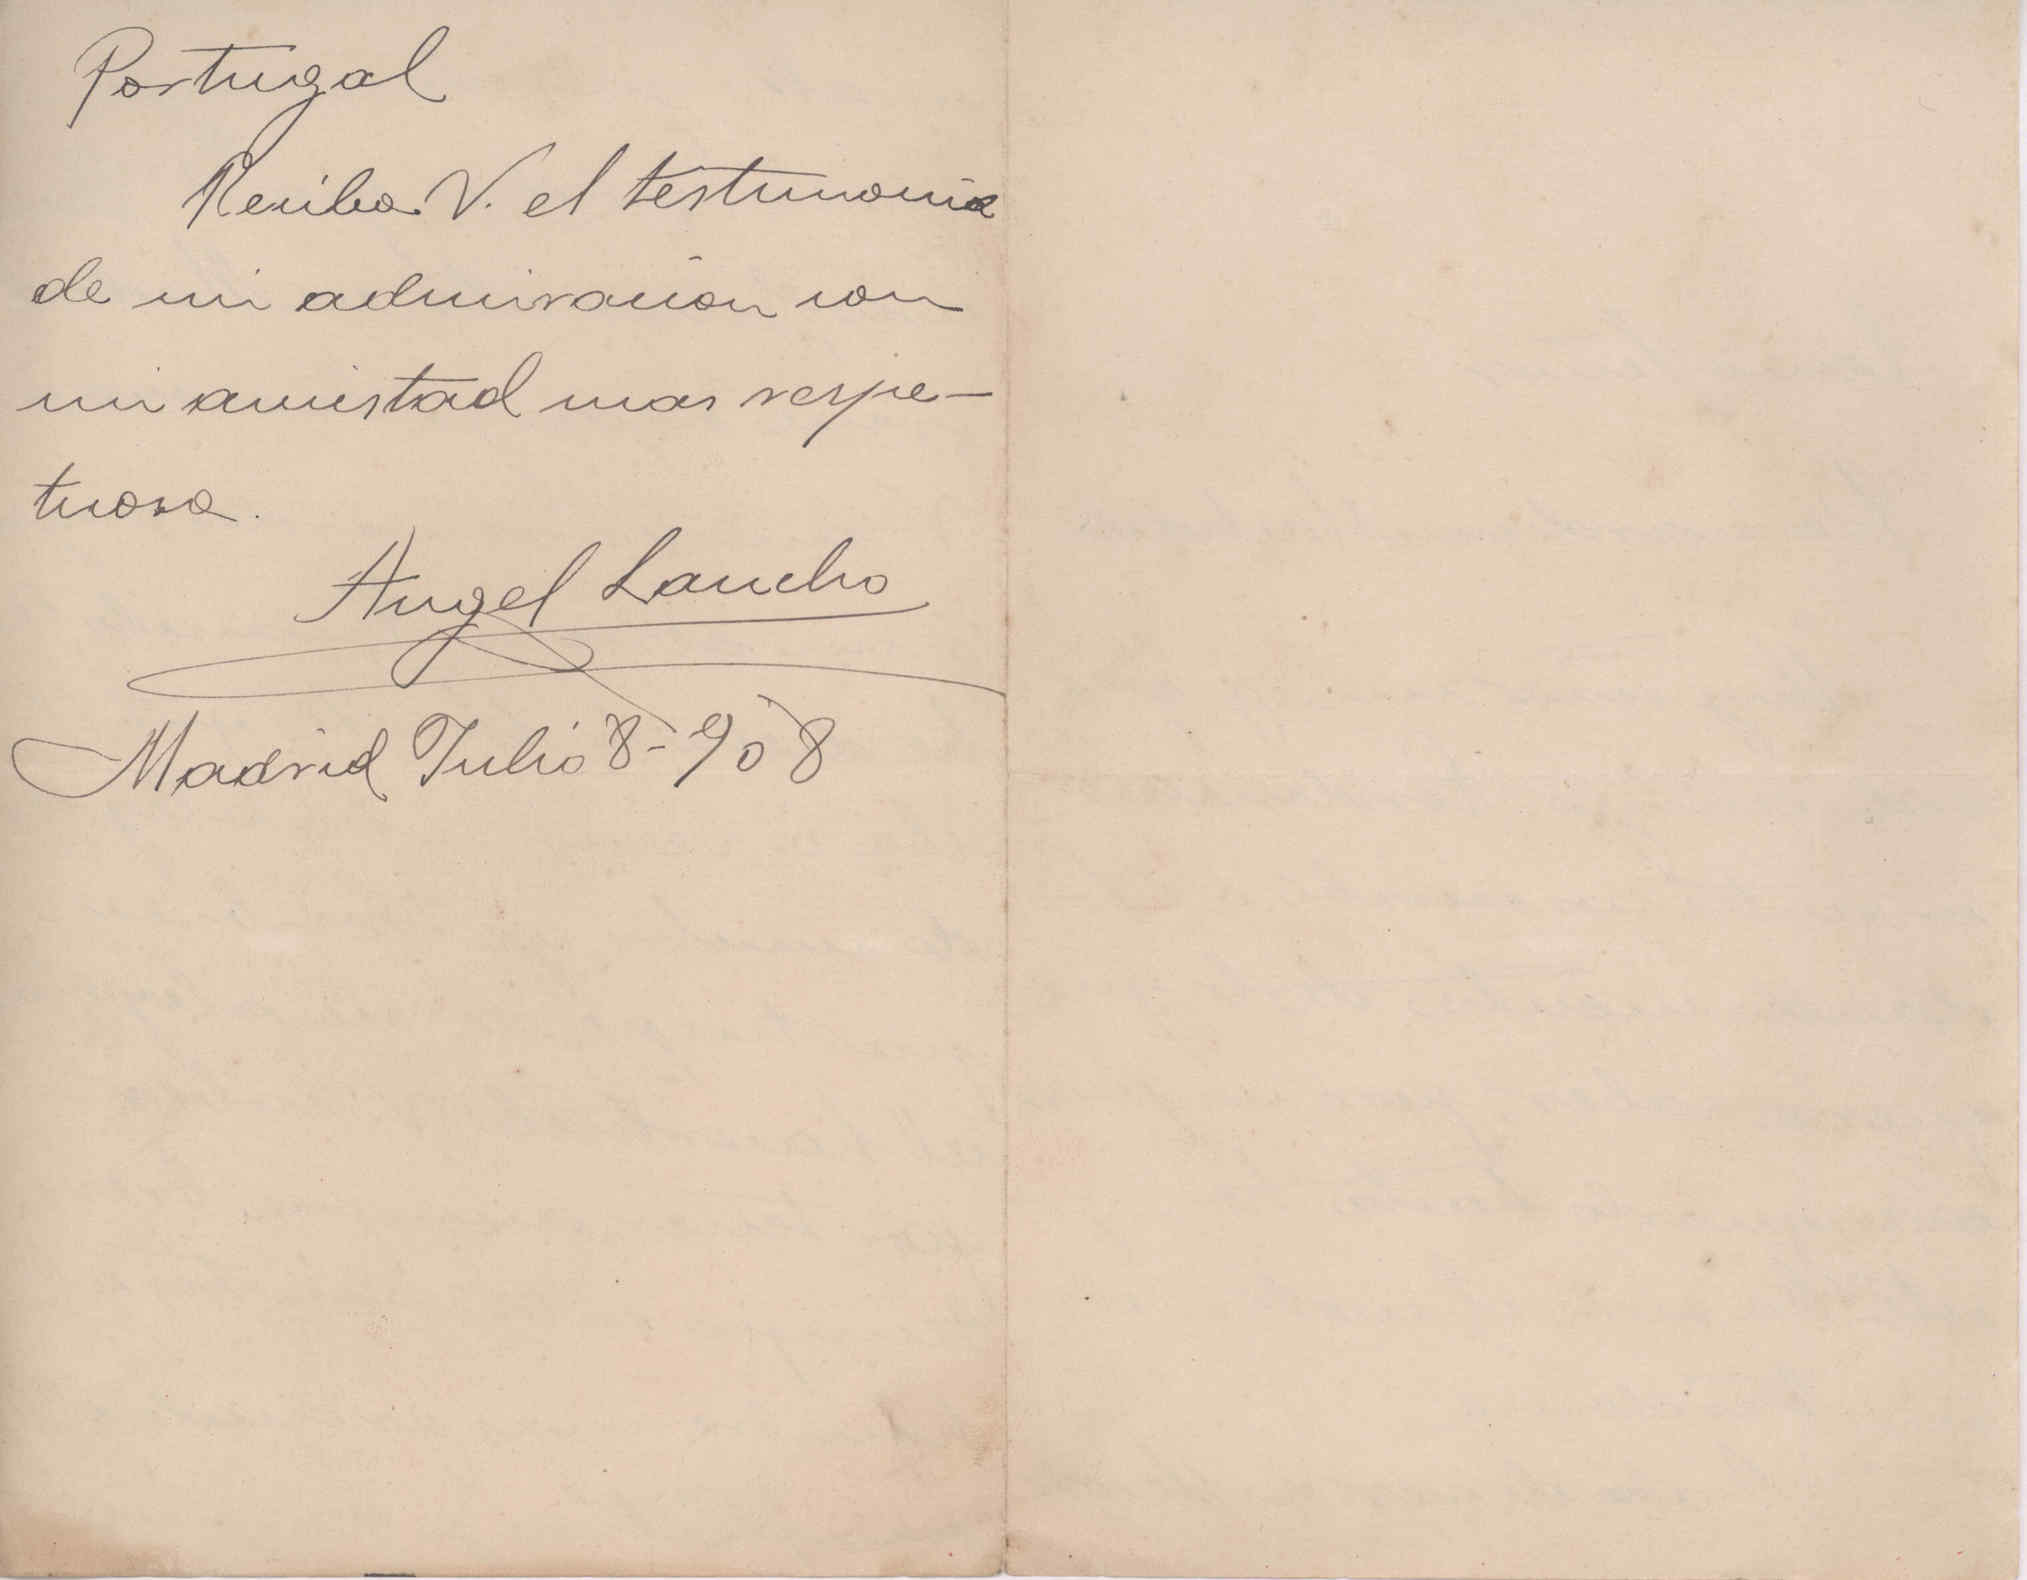 Portugal
Reciba V. el testimonio
de mi admiración con
mi amistad mas respe-
tuosa.
Angel Lancho
Madrid Julio 8-908